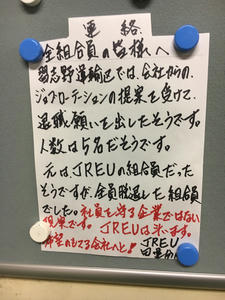 連絡
全組合員の皆様へ
習志野運輸区では、会社からの
ジョブローテーションの提案を受けて、
退職願いを出したそうです。
人数は5名だそうです。
元は、JREUの組合員だった
そうですが、全員脱退した組合員
でした。社員を守る企業ではない
現実です。JREUは来ます。
希望のもてる会社へと!
JREU